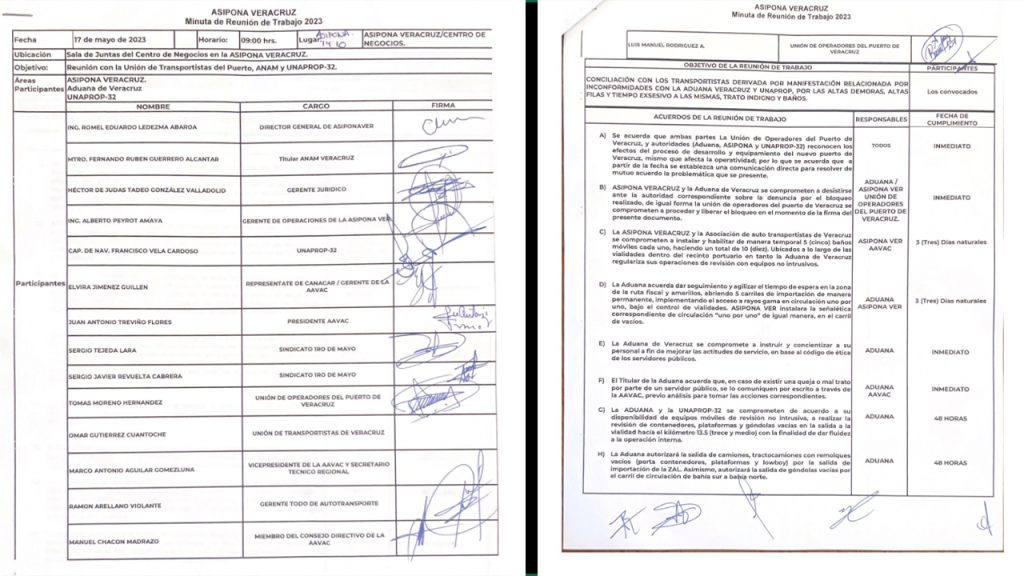 ASIPONA VERACRUZ
Minuta de Reunión de Trabajo 2023
Fecha 17 de mayo de 2023 Horario: 09:00 hrs. Lugar: ASIPONA VERACRUZ/CENTRO DE
NEGOCIOS.
Ubicación Sala de Juntas del Centro de Negocios en la ASIPONA VERACRUZ.
Objetivo: Reunión con la Unión de Transportistas del Puerto, ANAM y UNAPROP-32.
Áreas
Participantes
ASIPONA VERACRUZ.
Aduana de Veracruz
UNAPROP-32
NOMBRE CARGO FIRMA
Participantes
ING. ROMEL EDUARDO LEDEZMA ABAROA DIRECTOR GENERAL DE ASIPONAVER
MTRO. FERNANDO RUBEN GUERRERO ALCANTAR Titular ANAM VERACRUZ
HÉCTOR DE JUDAS TADEO GONZÁLEZ VALLADOLID GERENTE JURIDICO
ING. ALBERTO PEYROT AMAYA GERENTE DE OPERACIONES DE LA ASIPONA VER
CAP. DE NAV. FRANCISCO VELA CARDOSO UNAPROP-32
ELVIRA JIMENEZ GUILLEN REPRESENTATE DE CANACAR / GERENTE DE LA
AAVAC
JUAN ANTONIO TREVIÑO FLORES PRESIDENTE AAVAC
SERGIO TEJEDA LARA SINDICATO 1RO DE MAYO
SERGIO JAVIER REVUELTA CABRERA SINDICATO 1RO DE MAYO
TOMAS MORENO HERNANDEZ UNIÓN DE OPERADORES DEL PUERTO DE
VERACRUZ
OMAR GUTIERREZ CUANTOCHE UNIÓN DE TRANSPORTISTAS DE VERACRUZ
MARCO ANTONIO AGUILAR GOMEZLUNA VICEPRESIDENTE DE LA AAVAC Y SECRETARIO
TECNICO REGIONAL
RAMON ARELLANO VIOLANTE GERENTE TODO DE AUTOTRANSPORTE
MANUEL CHACON MADRAZO MIEMBRO DEL CONSEJO DIRECTIVO DE LA
AAVAC
ASIPONA VERACRUZ
Minuta de Reunión de Trabajo 2023
LUIS MANUEL RODRIGUEZ A. UNIÓN DE OPERADORES DEL PUERTO DE
VERACRUZ
OBJETIVO DE LA REUNIÓN DE TRABAJO PARTICIPANTES
CONCILIACIÓN CON LOS TRANSPORTISTAS DERIVADA POR MANIFESTACIÓN RELACIONADA POR
INCONFORMIDADES CON LA ADUANA VERACRUZ Y UNAPROP, POR LAS ALTAS DEMORAS, ALTAS
FILAS Y TIEMPO EXSESIVO A LAS MISMAS, TRATO INDIGNO Y BAÑOS.
Los convocados
ACUERDOS DE LA REUNIÓN DE TRABAJO RESPONSABLES FECHA DE
CUMPLIMIENTO
A) Se acuerda que ambas partes La Unión de Operadores del Puerto de
Veracruz, y autoridades (Aduana, ASIPONA y UNAPROP-32) reconocen los
efectos del proceso de desarrollo y equipamiento del nuevo puerto de
Veracruz, mismo que afecta la operatividad; por lo que se acuerda que a
partir de la fecha se establezca una comunicación directa para resolver de
mutuo acuerdo la problemática que se presente.
TODOS INMEDIATO
B) ASIPONA VERACRUZ y la Aduana de Veracruz se comprometen a desistirse
ante la autoridad correspondiente sobre la denuncia por el bloqueo
realizado, de igual forma la unión de operadores del puerto de Veracruz se
comprometen a proceder y liberar el bloqueo en el momento de la firma del
presente documento.
ADUANA /
ASIPONA VER
UNIÓN DE
OPERADORES
DEL PUERTO DE
VERACRUZ.
INMEDIATO
C) La ASIPONA VERACRUZ y la Asociación de auto transportistas de Veracruz
se comprometen a instalar y habilitar de manera temporal 5 (cinco) baños
móviles cada uno, haciendo un total de 10 (diez). Ubicados a lo largo de las
vialidades dentro del recinto portuario en tanto la Aduana de Veracruz
regulariza sus operaciones de revisión con equipos no intrusivos.
ASIPONA VER
AAVAC
3 (Tres) Días naturales
D) La Aduana acuerda dar seguimiento y agilizar el tiempo de espera en la zona
de la ruta fiscal y amarillos, abriendo 5 carriles de importación de manera
permanente, implementando el acceso a rayos gama en circulación uno por
uno, bajo el control de vialidades. ASIPONA VER instalara la señalética
correspondiente de circulación "uno por uno" de igual manera, en el carril
de vacíos.
ADUANA
ASIPONA VER
3 (Tres) Días naturales
E) La Aduana de Veracruz se compromete a instruir y concientizar a su
personal a fin de mejorar las actitudes de servicio, en base al código de ética
de los servidores públicos.
ADUANA INMEDIATO
F) El Titular de la Aduana acuerda que, en caso de existir una queja o mal trato
por parte de un servidor público, se lo comuniquen por escrito a través de
la AAVAC, previo análisis para tomar las acciones correspondientes.
ADUANA
AAVAC
INMEDIATO
G) La ADUANA y la UNAPROP-32 se comprometen de acuerdo a su
disponibilidad de equipos móviles de revisión no intrusiva, a realizar la
revisión de contenedores, plataformas y góndolas vacías en la salida a la
vialidad hacía el kilómetro 13.5 (trece y medio) con la finalidad de dar fluidez
a la operación interna.
ADUANA 48 HORAS
H) La Aduana autorizará la salida de camiones, tractocamiones con remolques
vacíos (porta contenedores, plataformas y lowboy) por la salida de
importación de la ZAL. Asimismo, autorizará la salida de góndolas vacías por
el carril de circulación de bahía sur a bahía norte.
ADUANA 48 HORAS